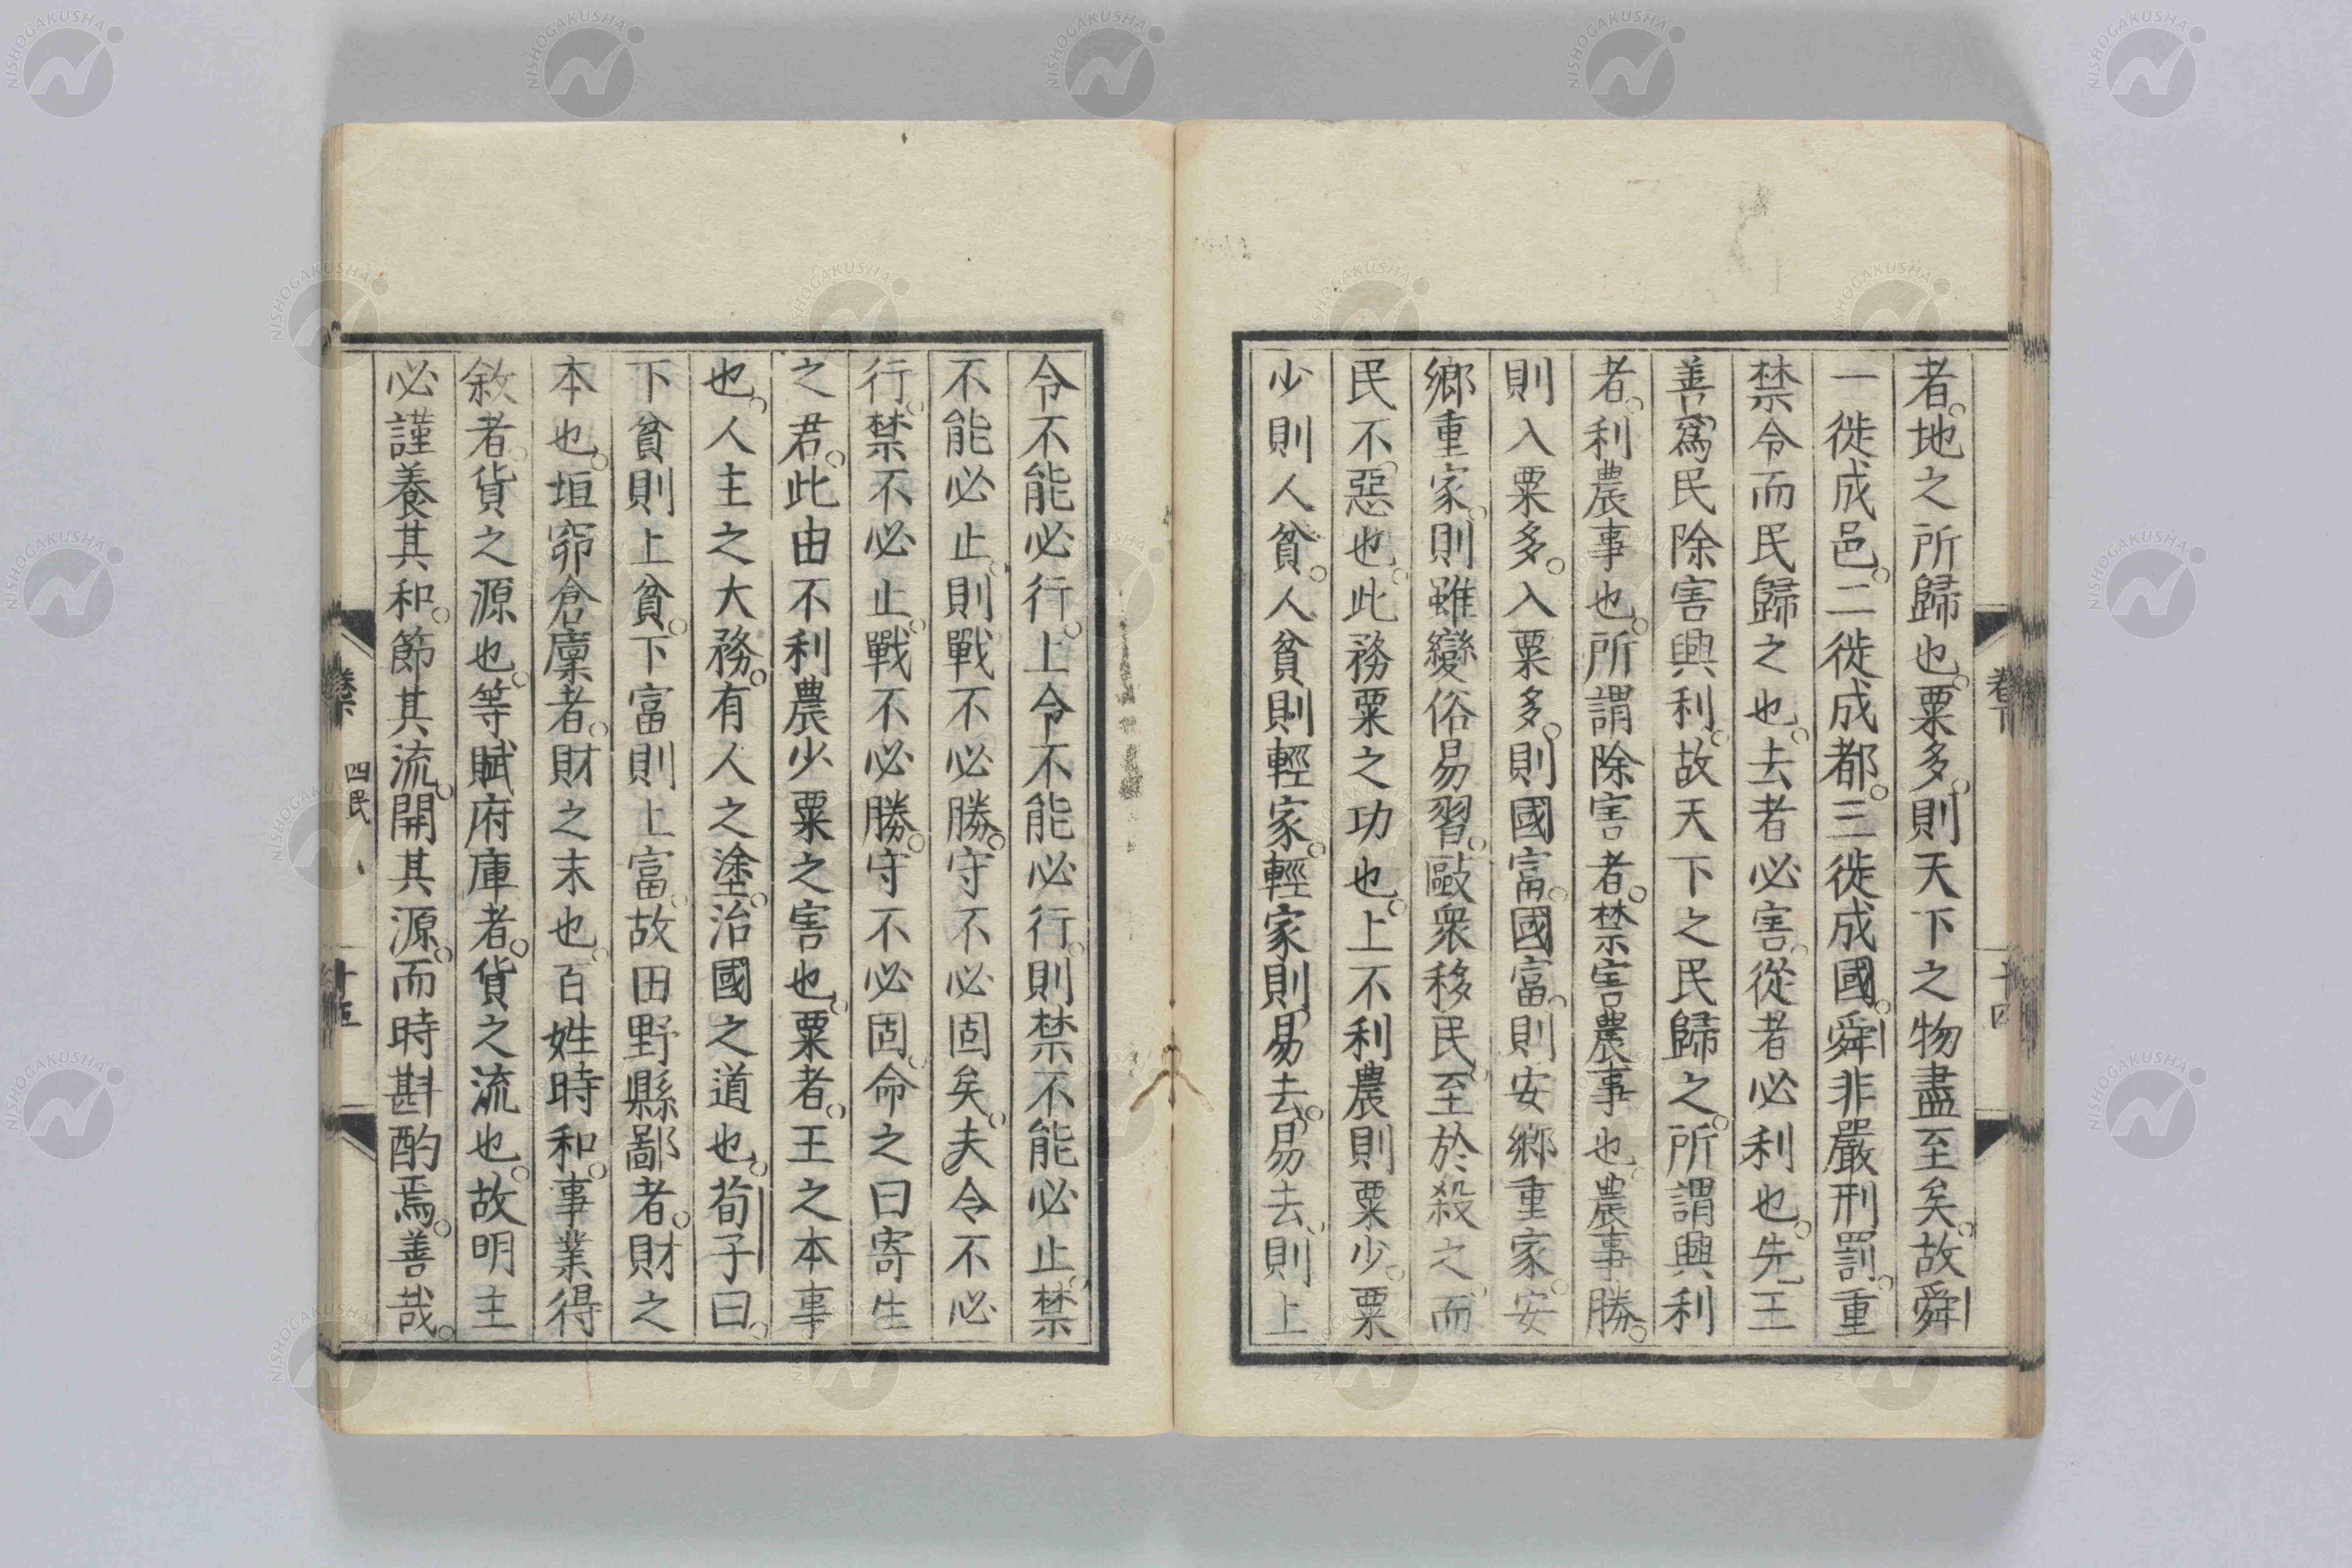 者。地之所歸也。粟多。則天下之物盡至矣。故舜
一徙成邑。二徙成都。三徙成國。舜非嚴刑罰。重
禁令而民歸之也。去者必害。從者必利也。先王
善爲民除害興利。故天下之民歸之。所謂興利
者。利農事也。所謂除害者。禁害農事也。農事勝。
則入粟多。入粟多。則國富。國富。則安鄉重家。安
鄉重家。則雖變俗易習。敺衆移民。至於殺之。而
民不惡也。此務粟之功也。上不利農則粟少。粟
少則人貧。人貧則輕家。輕家則易去。易去。則上
卷下
十四
令不能必行。上令不能必行。則禁不能必止。禁
不能必止。則戰不必勝。守不必固矣。夫令不必
行。禁不必止。戰不必勝。守不必固。命之曰寄生
之君。此由不利農少粟之害也。粟者。王之本事
也。人主之大務。有人之塗。治國之道也。荀子曰。
下貧則上貧。下富則上富。故田野縣鄙者。財之
本也。垣窌倉廩者。財之末也。百姓時和。事業得
敘者。貨之源也。等賦府庫者。貨之流也。故明主
必謹養其和。節其流。開其源。而時斟酌焉。善哉。
卷下
四民
八
十五
NISHOGAKUSHA